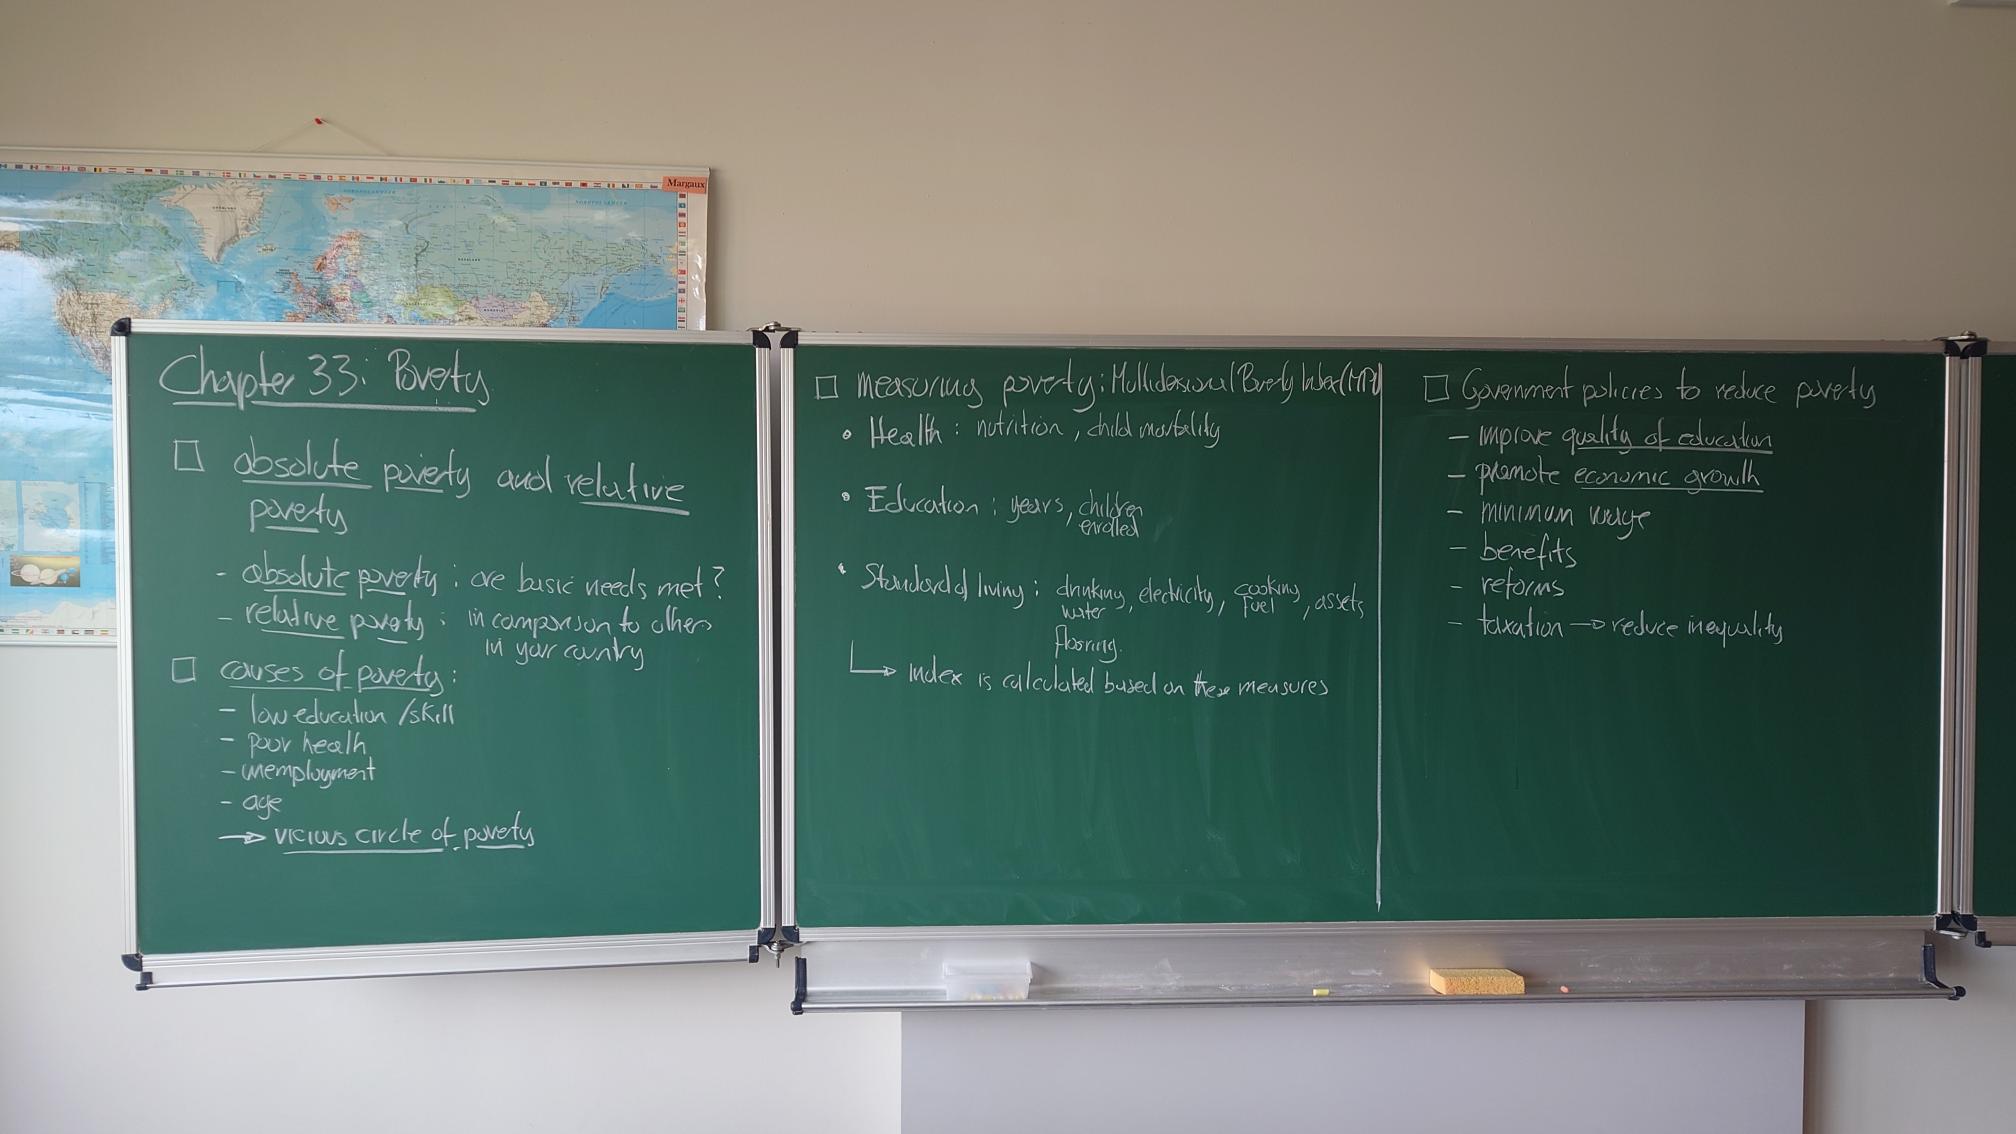 Margaux
Chapter 33: Poverty
absolute poverty and relative
poverty
- absolute poverty: are basic needs met?
- relative poverty: in comparison to others
in your country
causes of poverty:
- low education/skill
- poor health
- unemployment
- age
→ vicious circle of poverty
measuring poverty: Poverty Index (MPI)
• Health: nutrition, child mortality
• Education: years, children
enrolled
• Standard of living: drinking, electricity, cooking, assets
water fuel
flooring.
→ Index is calculated based on these measures
Government policies to reduce poverty
- improve quality of education
- promote economic growth
- minimum wage
- benefits
- reforms
- taxation → reduce inequality